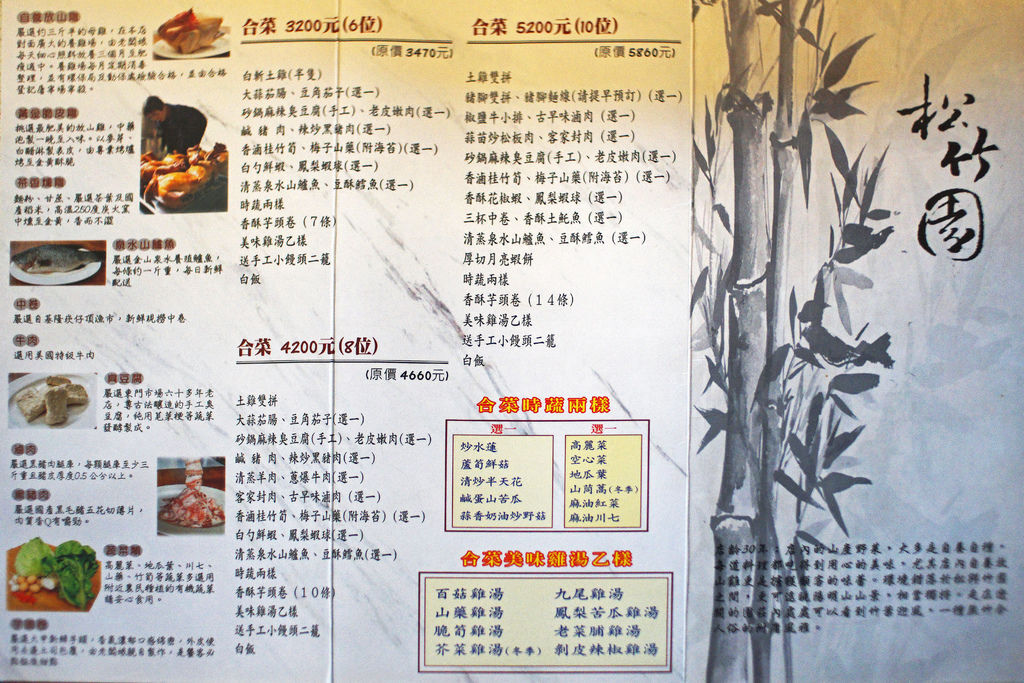 自養放山雞
嚴選約三斤半的母雞，在本店
對面廣大的養雞場，由老闆娘
每天細心照料放養三個月至肥
瘦適中。養雞場每月定期消毒
整理，並有環保局及動保處檢驗合格，並由合格
登記屠宰場宰殺。
黃金脆皮雞
挑選最肥美的放山雞，中藥
泡製一晚至入味。以麥芽、
白醋淋製表皮，由專業烤爐
烤至金黃酥脆
茶香燻雞
麵粉、甘蔗、嚴選茶葉及國
產稻米，高溫250度炭火窯
中燻至金黃，香而不澀
泉水山鱸魚
嚴選金山泉水養殖鱸魚，
每條約一斤重，每日新鮮
配送
中卷
嚴選自基隆崁仔頂漁市，新鮮現撈中卷
牛肉
選用美國特級牛肉
臭豆腐
嚴選東門市場六十多年老
店，專古法釀造的手工臭
豆腐，純用莧菜梗等蔬菜
發酵製成。
滷肉
嚴選黑豬肉腿庫，每顆腿庫至少三
斤重且豬皮厚度0.5公分以上。
黑豬肉
嚴選國產黑毛豬五花切薄片，
肉質香Q有嚼勁。
蔬菜類
高麗菜、地瓜葉、川七、
山藥、竹筍等蔬菜多選用
附近農民種植的有機蔬菜
請安心食用。
芋頭卷
合菜 3200元(6位)
(原價 3470元)
白斬土雞(半隻)
大蒜茄腸、豆角茄子(選一)
砂鍋麻辣臭豆腐(手工)、老皮嫩肉(選一)
鹹 豬 肉、辣炒黑豬肉(選一)
香滷桂竹荀、梅子山藥(附海苔)(選一)
白勺鮮蝦、鳳梨蝦球(選一)
清蒸泉水山鱸魚、豆酥鱈魚(選一)
時蔬兩樣
香酥芋頭卷 (７條)
美味雞湯乙樣
送手工小饅頭二籠
白飯
合菜 4200元(8位)
(原價 4660元)
土雞雙拼
大蒜茄腸、豆角茄子(選一)
砂鍋麻辣臭豆腐(手工)、老皮嫩肉(選一)
鹹 豬 肉、辣炒黑豬肉(選一)
清蒸羊肉、蔥爆牛肉(選一)
客家封肉、古早味滷肉 (選一)
香滷桂竹荀、梅子山藥(附海苔) (選一)
白勺鮮蝦、鳳梨蝦球(選一)
清蒸泉水山鱸魚、豆酥鱈魚(選一)
時蔬兩樣
香酥芋頭卷 (１０條)
美味雞湯乙樣
送手工小饅頭二籠
白飯
合菜 5200元(10位)
(原價 5860元)
土雞雙拼
豬腳雙拼、豬腳麵線(請提早預訂) (選一)
椒鹽牛小排、古早味滷肉 (選一)
蒜苗炒松板肉、客家封肉 (選一)
砂鍋麻辣臭豆腐(手工)、老皮嫩肉(選一)
香滷桂竹荀、梅子山藥(附海苔) (選一)
香酥花椒蝦、鳳梨蝦球 (選一)
三杯中卷、香酥土魠魚 (選一)
清蒸泉水山鱸魚、豆酥鱈魚 (選一)
厚切月亮蝦餅
時蔬兩樣
香酥芋頭卷 (１４條)
美味雞湯乙樣
送手工小饅頭二籠
白飯
合菜時蔬兩樣
選一
炒水蓮
蘆筍鮮菇
清炒半天花
鹹蛋山苦瓜
蒜香奶油炒野菇
選一
高麗菜
空心菜
地瓜葉
山茼蒿(冬季)
麻油紅菜
麻油川七
合菜美味雞湯乙樣
百菇雞湯
山藥雞湯
脆筍雞湯
芥菜雞湯(冬季)
九尾雞湯
鳳梨苦瓜雞湯
老菜脯雞湯
剝皮辣椒雞湯
松竹園
店齡30年，店內的山產野菜，大多是自養自種，
每道料理都吃得到用心的美味，尤其店內自養放
山雞更是擄獲顧客的味蕾。環境錯落於松與竹園
之間，更可遠眺陽明山山景，相當獨特。是在遊
間的園莊內處處可以看到竹葉迎風，一種無竹令
人俗的